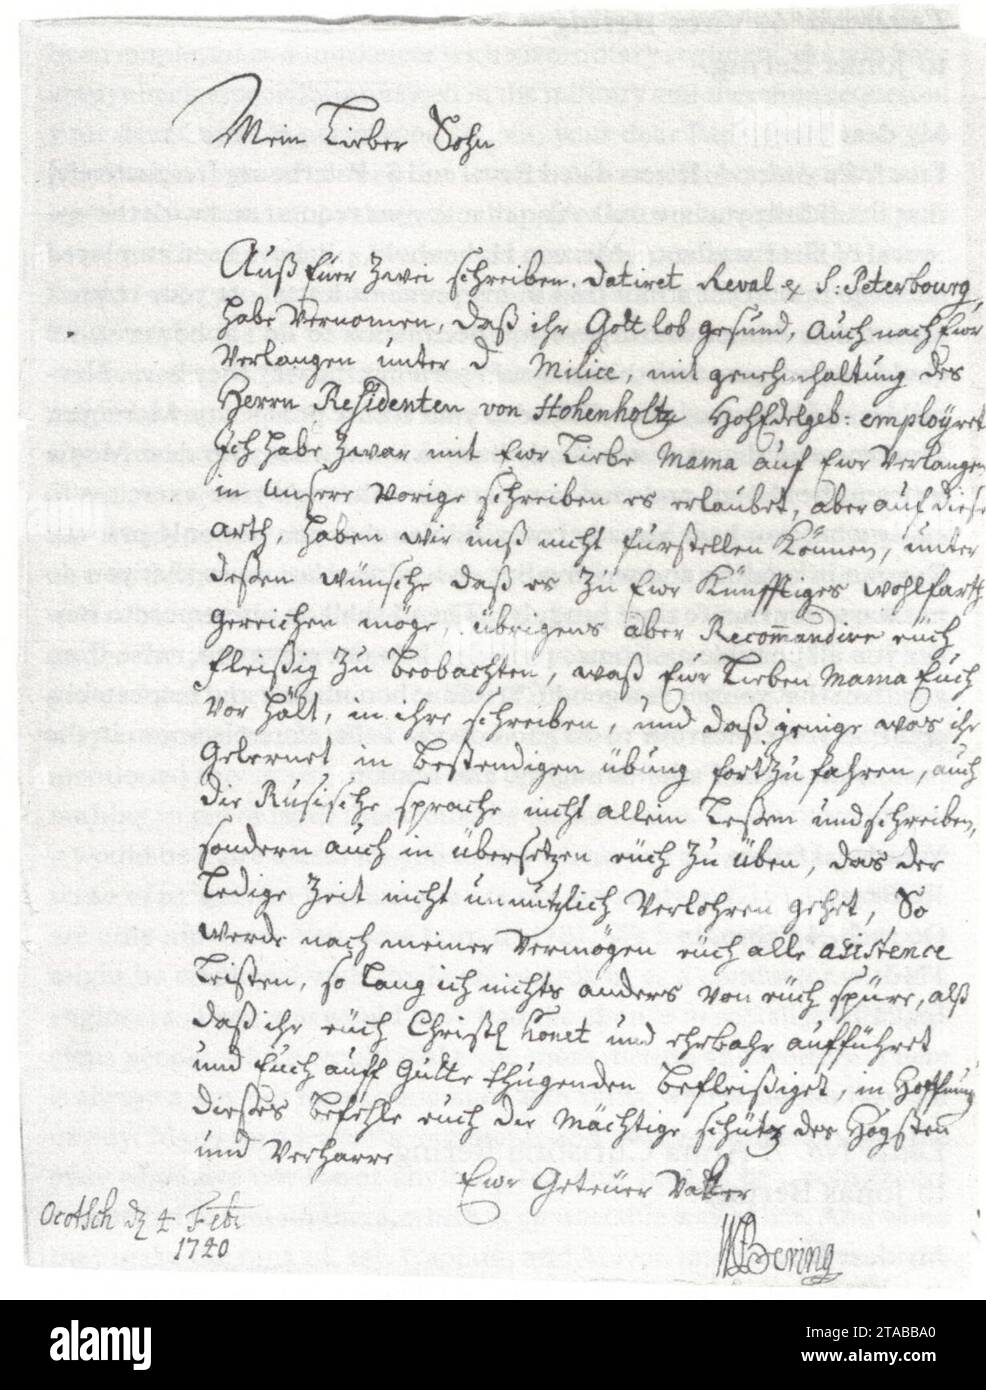 Mein Lieber Sohn
Auß Eürer Zwei schreiben. datiret Reval & S: Peterbourg,
habe Vernomen, daß ihr Gott lob gesund, auch nach Ewr
Verlangen unter d. Milice, mit genehmhaltung des
Herrn Residenten von Hohenholtz HohEdelgeb: employret
Ich habe zwar mit Ewr Liebe Mama auf Ewr Verlangen
in unsere Vorige schreiben es erlaubet, aber auf diese
arth, haben wir unß nicht fürstellen können, unter
deßen wünsche daß es zu Ewr Künfftiges wohlfarth
gereichen möge, übrigens aber Recomandire eüch
fleißig zu beobachten, waß Ewr Lieben Mama Euch
vor hält, in ihre schreiben, und daß jenige was ihr
gelernet in bestendigen übung fort zu fahren, auch
die Rusische sprache nicht allein Leßen und schreiben,
sondern auch in übersetzen eüch zu üben, das der
Ledige Zeit nicht unnützlich Verlohren gehet, So
werde nach meiner Vermögen eüch alle asistence
Leisten, so lang ich nichts anders von eüch spüre, alß
daß ihr eüch Christl und ehrbahr aufführet
und Euch auff gutte thugenden befleißiget, in Hoffnung
dieses befehle euch der Mächtige schütz des Högsten
und Verharre
Ewr Getreüer Vatter
WBering
Ocotsch d 4 Feb:
1740
alamy
Image ID: 2TABBA0
www.alamy.com